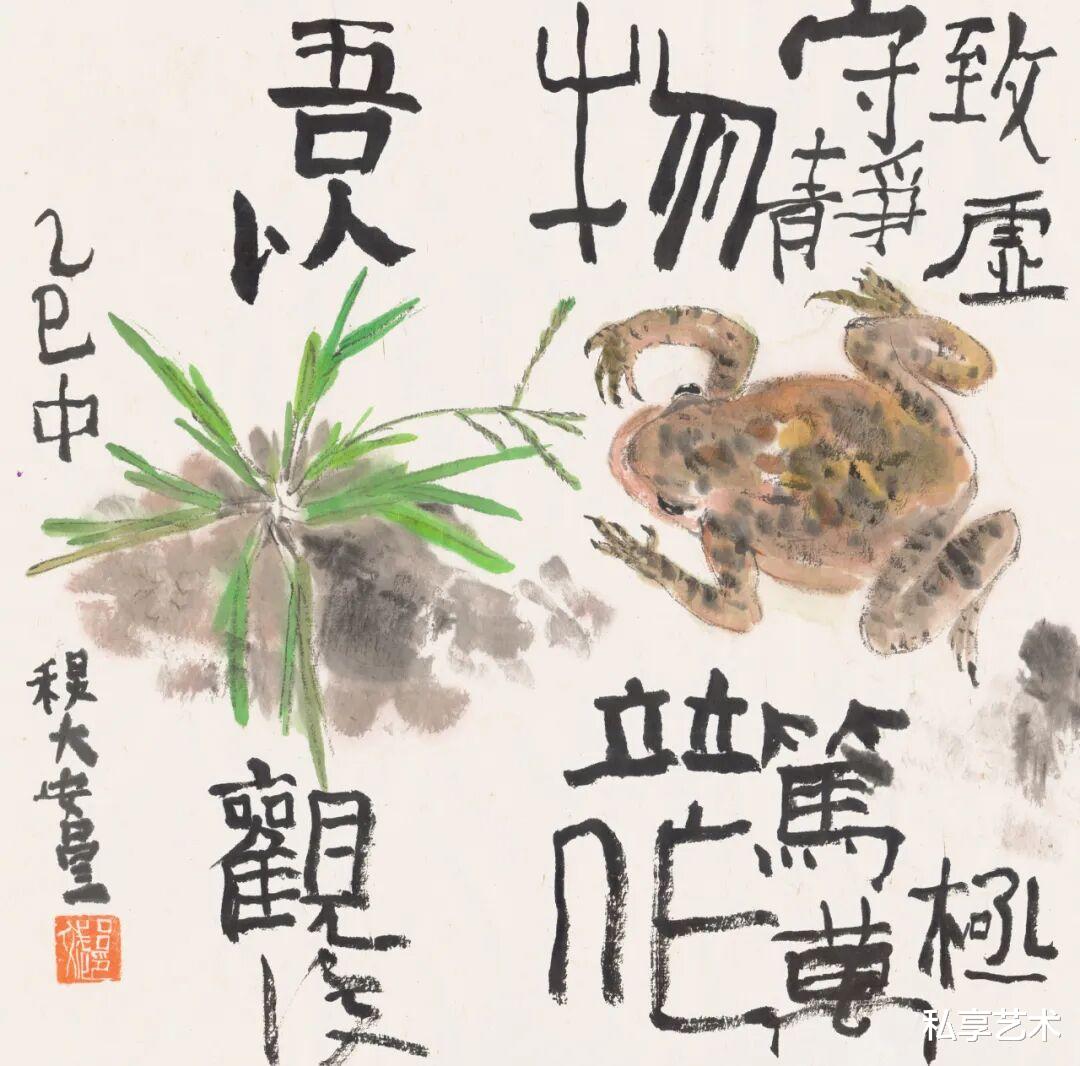 致虛極
守靜篤萬
物竝作
吾以觀復
乙巳中
大安
私享艺术